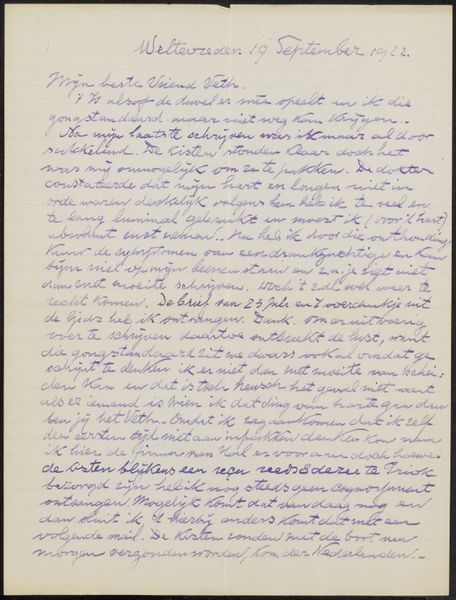 Weltevreden 19 September 1922.
Mijn beste Vriend Veth.
't Is alsof de duivel er mêe speelt en ik die
gongstandaard maar niet weg kan krijgen.
Na mijn laatste schrijven was ik maar al door
sukkelend. De kisten stonden klaar doch het
was mij onmogelijk om ze te pakken. De dokter
constateerde dat mijn hart en longen niet in
orde waren denkelijk volgens hem heb ik te veel
te lang luminal gebruikt en moest ik (voor 't hart)
absoluut rust nemen. Nu heb ik door die onthouding
de symptomen van een drankzuchtige en kan
bijna niet op mijn beenen staan en z.a. je ziet niet
dan met moeite schrijven. Doch 't zal wel weer te
recht komen. De brief van 23 Juli en 7 overdrukje uit
de Gids heb ik ontvangen. Dank. om er uitvoerig
over te schrijven daartoe ontbreekt de lust, want
die gongstandaard zit me dwars ook al omdat ge
schijnt te denken ik er niet dan met moeite van schei-
den kan en dat is toch heusch het geval niet want
als er iemand is wien ik dat ding van harte gun dan
ben jij het Veth. Omdat ik zag aankomen dat ik zelf
den eersten tijd niet aan inpakken denken kon nam
ik hier de firma van Hal er voor aan doch hoewel
de kisten blijkens een reçu reeds 8 dezer te Priok
bezorgd zijn heb ik nog steeds geen cognossement
ontvangen. Mogelijk komt dat vandaag nog en
dan sluit ik 't hierbij anders komt dat met een
volgende mail. De kisten zouden met de boot van
morgen verzonden worden, Kon. der Nederlanden.